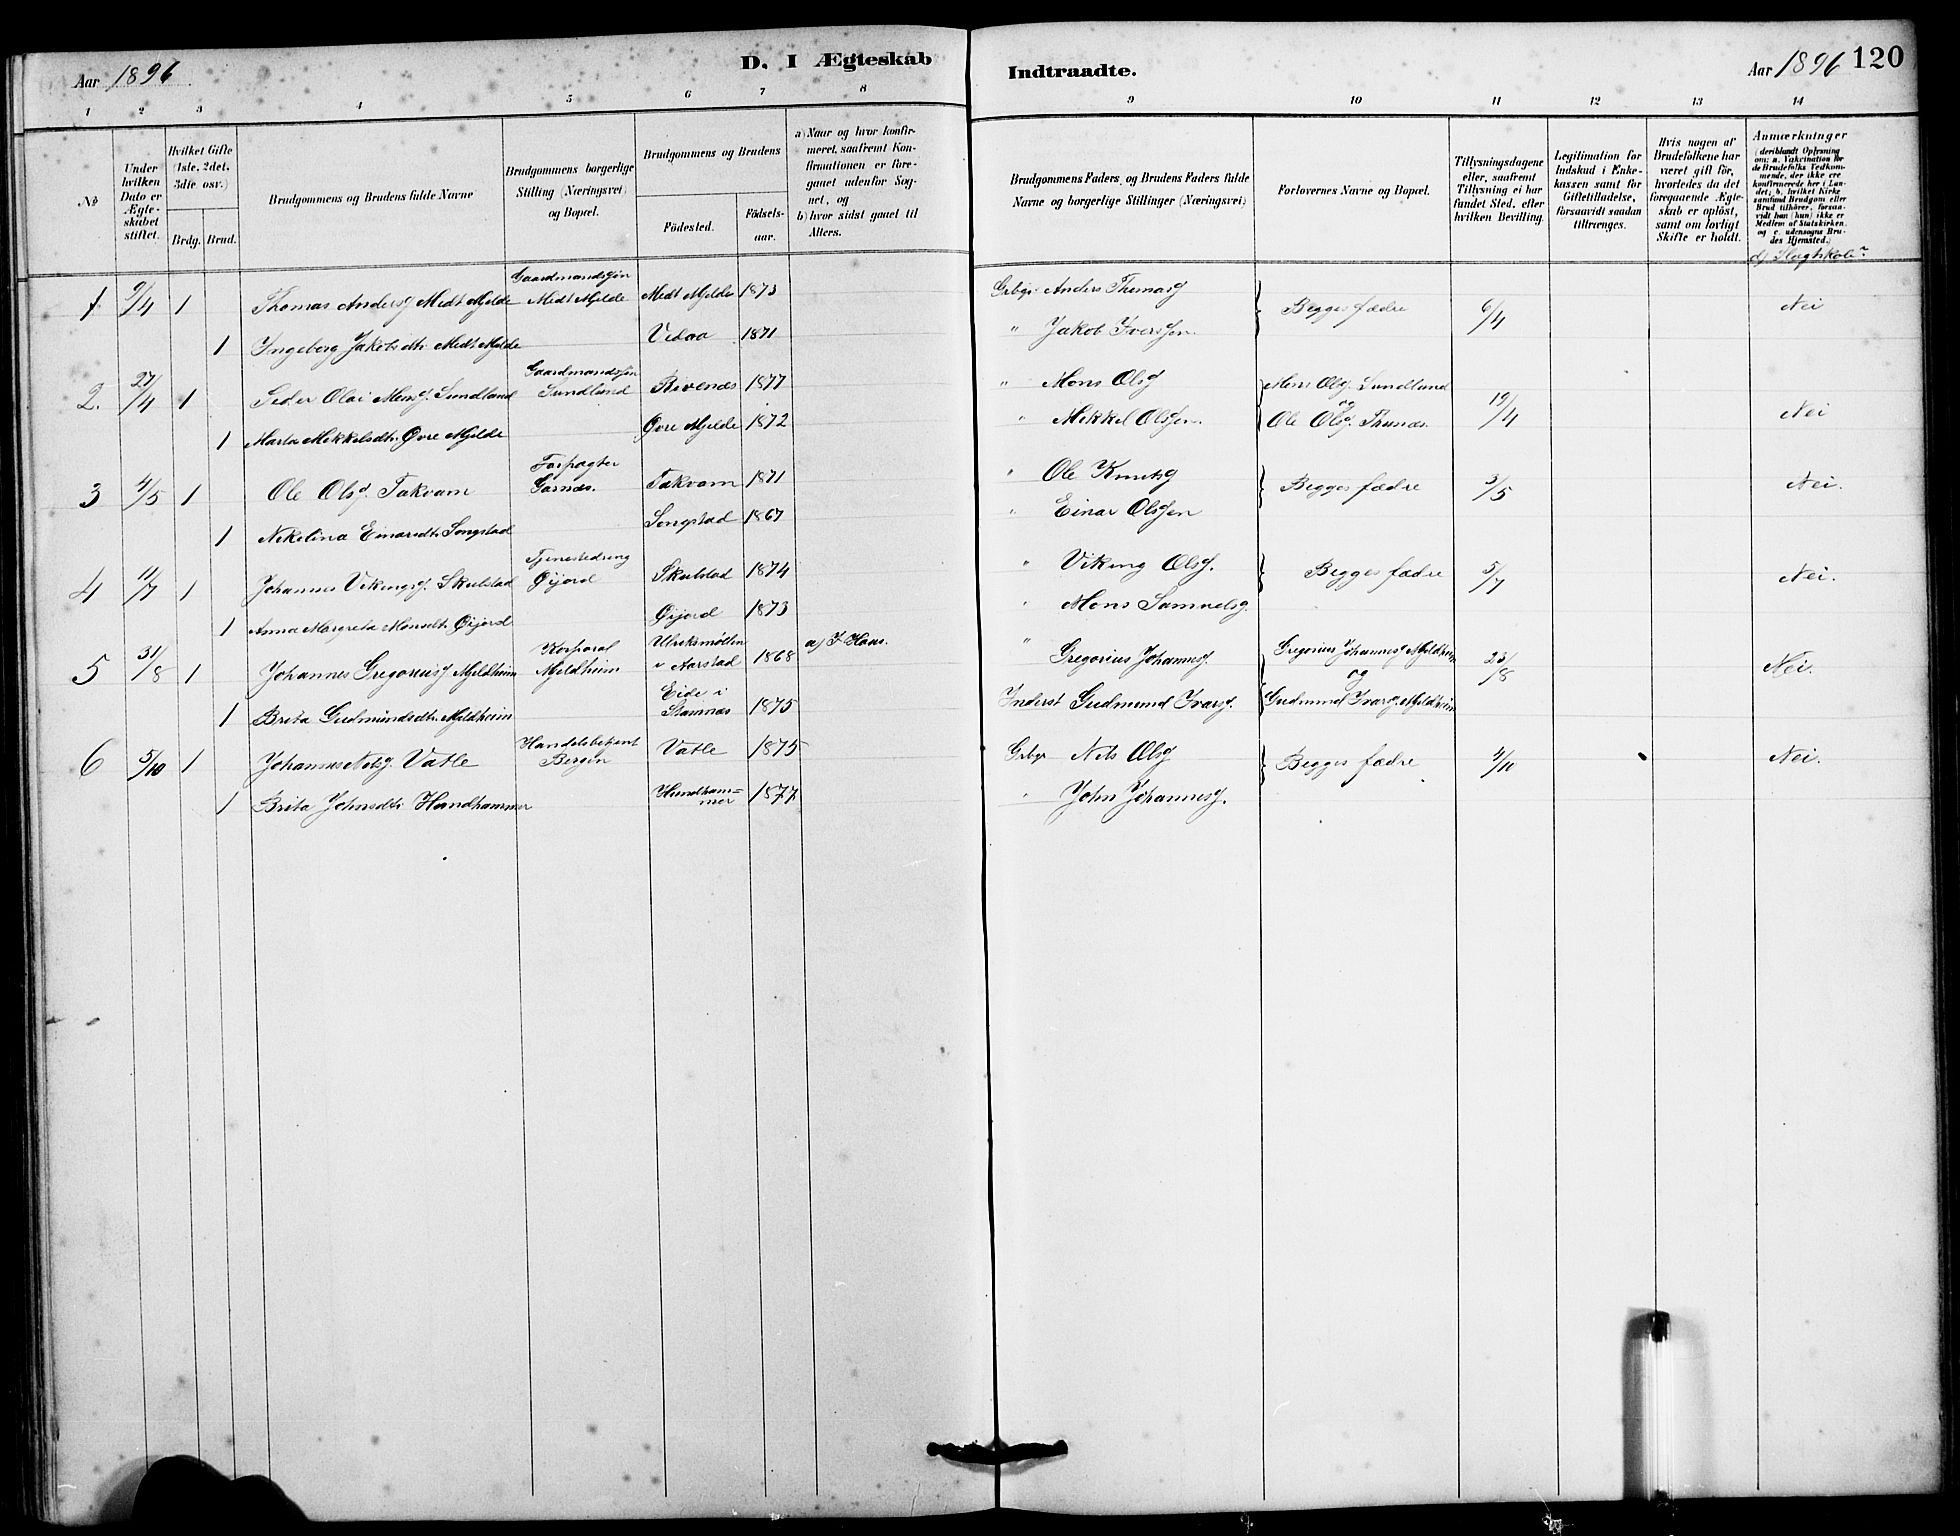 Aar 1896
D. I Ægteskab
Indtraadte.
Aar 1896 120
1 2 3 4 5 6 7 8 9 10 11 12 13 14
No
Under hvilken Dato er Ægteskabet stiftet.
Hvilket Gifte (1ste, 2det, 3die osv.)
Brdg. Brud.
Brudgommens og Brudens fulde Navne
Brudgommens borgerlige Stilling (Næringsvei) og Bopæl.
Brudgommens og Brudens
Födested.
Födselsaar.
a) Naar og hvor konfirmeret, saafremt Konfirmationen er foregaaet udenfor Sognet, og
b) hvor sidst gaaet til Alters.
Brudgommens Faders og Brudens Faders fulde Navne og borgerlige Stillinger (Næringsvei)
Forlovernes Navne og Bopæl.
Tillysningsdagene eller, saafremt Tillysning ei har fundet Sted, efter hvilken Bevilling.
Legitimation for Indskud i Enkekassen samt for Giftetilladelse, forsaavidt saadan tiltrænges.
Hvis nogen af Brudefolkene har været gift för, hvorledes da det foregaaende Ægteskab er oplöst, samt om lovligt Skifte er holdt.
Anmærkninger (deriblandt Oplysning om: a. Vakcination for de Brudefolks Vedkommende, der ikke ere konfirmerede her i Landet; b. hvilket Kirkesamfund Brudgom eller Brud tilhörer, forsaavidt han (hun) ikke er Medlem af Statskirken, og c. udensogns Brudes Hjemsted.)
1 9/4 1 Thomas Andersg Midt Mjelde Gaardmandssøn Midt Mjelde Midt Mjelde 1873 Grbgr Anders Thomasg Begges fædre 6/4 Nei
1 Ingeborg Jakobsdtr Midt Mjelde Vedaa 1871 " Jakob Iverssen
2. 27/4 1 Peder Olai Monsg. Sundland Gaardmandssøn Sundland 1877 " Mons Olsg Mons Olsg. Sundland og 19/4 Nei
1 Marta Mikkelsdtr. Øvre Mjelde Øvre Mjelde 1872 " Mikkel Olssen Ole Olsg.
3 4/5 1 Ole Olsg. Takvam Forpagter Garnæs. Takvam 1871 " Ole Knutsg Begges fædre 3/5 Nei.
1 Nikolina Einarsdtr. Songstad Songstad 1867 " Einar Olssen
4 11/7 1 Johannes Vikingsg. Skulstad Tjenestedreng Øijord Skulstad 1874 " Viking Olsg. Begges fædre 5/7 Nei.
1 Anna Margreta Monsdtr. Øijord Øijord 1873 " Mons Samuelsg.
5 31/8 1 Johannes Gregoriusg Mjeldheim Korporal Mjeldheim Ulriksmøllen i Aarstad 1868 a) I Haus. " Gregorius Johannesg. Gregorius Johannesg Mjeldheim og 23/8 Nei.
1 Brita Gudmundsdtr. Mjeldheim Eide i Stamnæs 1875 Inderst Gudmund Ivarsg. Gudmund Ivarsg. Mjeldheim
6 5/10 1 Johannes Nilsg. Vatle Handelsbetjent Bergen Vatle 1875 Grbgr Nils Olsg Begges fædre 4/10 Nei.
1 Brita Johnsdtr. Hundhammer Hundhammer 1877 " John Johannesg.